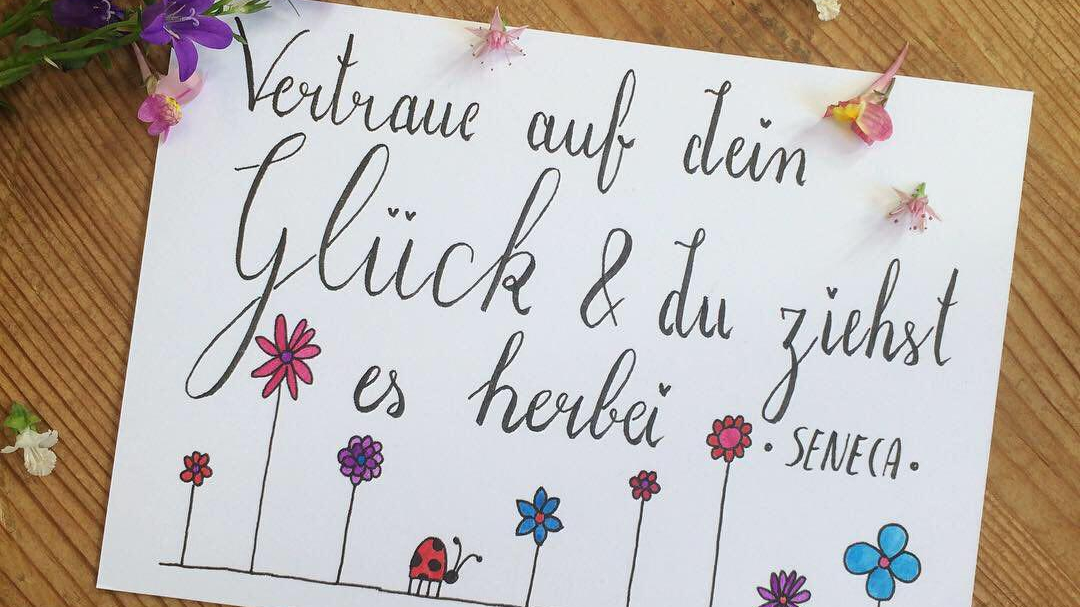 Vertraue auf dein
Glück & du ziehst
es herbei
• SENECA •